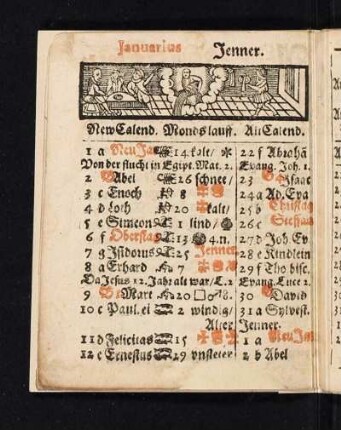 Januarius Jenner.
New Calend. Monds lauff. Alt Calend.
1 a New Ja 14 kalt/ 22 f Abrahã
Von der flucht in Egipt. Mat. 2. Evang. Joh. 1.
2 Abel 26 schnee/ 23 Isaac
3 c Enoch 8 24 a Ad. Eva
4 d Seth 20 kalt/ 25 b Christag
5 e Simeon 1 lind/ 26 c Stephan
6 f Oberstag 13 4.n. 27 d Joh. Ev
7 g Isidorus 25 Jenner 28 e Kindlein
8 a Erhard 7 29 f Tho. bisc.
Da Jesus 12. Jahr alt war/ L. 2 Evang. Luce 2.
9 Mart. 20 □♂8. 30 David
10 c Paul. ei 2 windig/ 31 a Sylvest.
Alter Jenner.
11 d Felicitas 15 1 a New Jar
12 e Ernestus 29 unsteter 2 b Abel